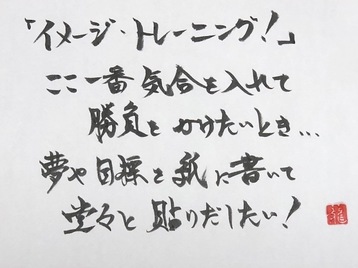 「イメージ・トレーニング!」
ここ一番気合を入れて
勝負をかけたいとき…
夢や目標を紙に書いて
堂々と貼りだしたい!